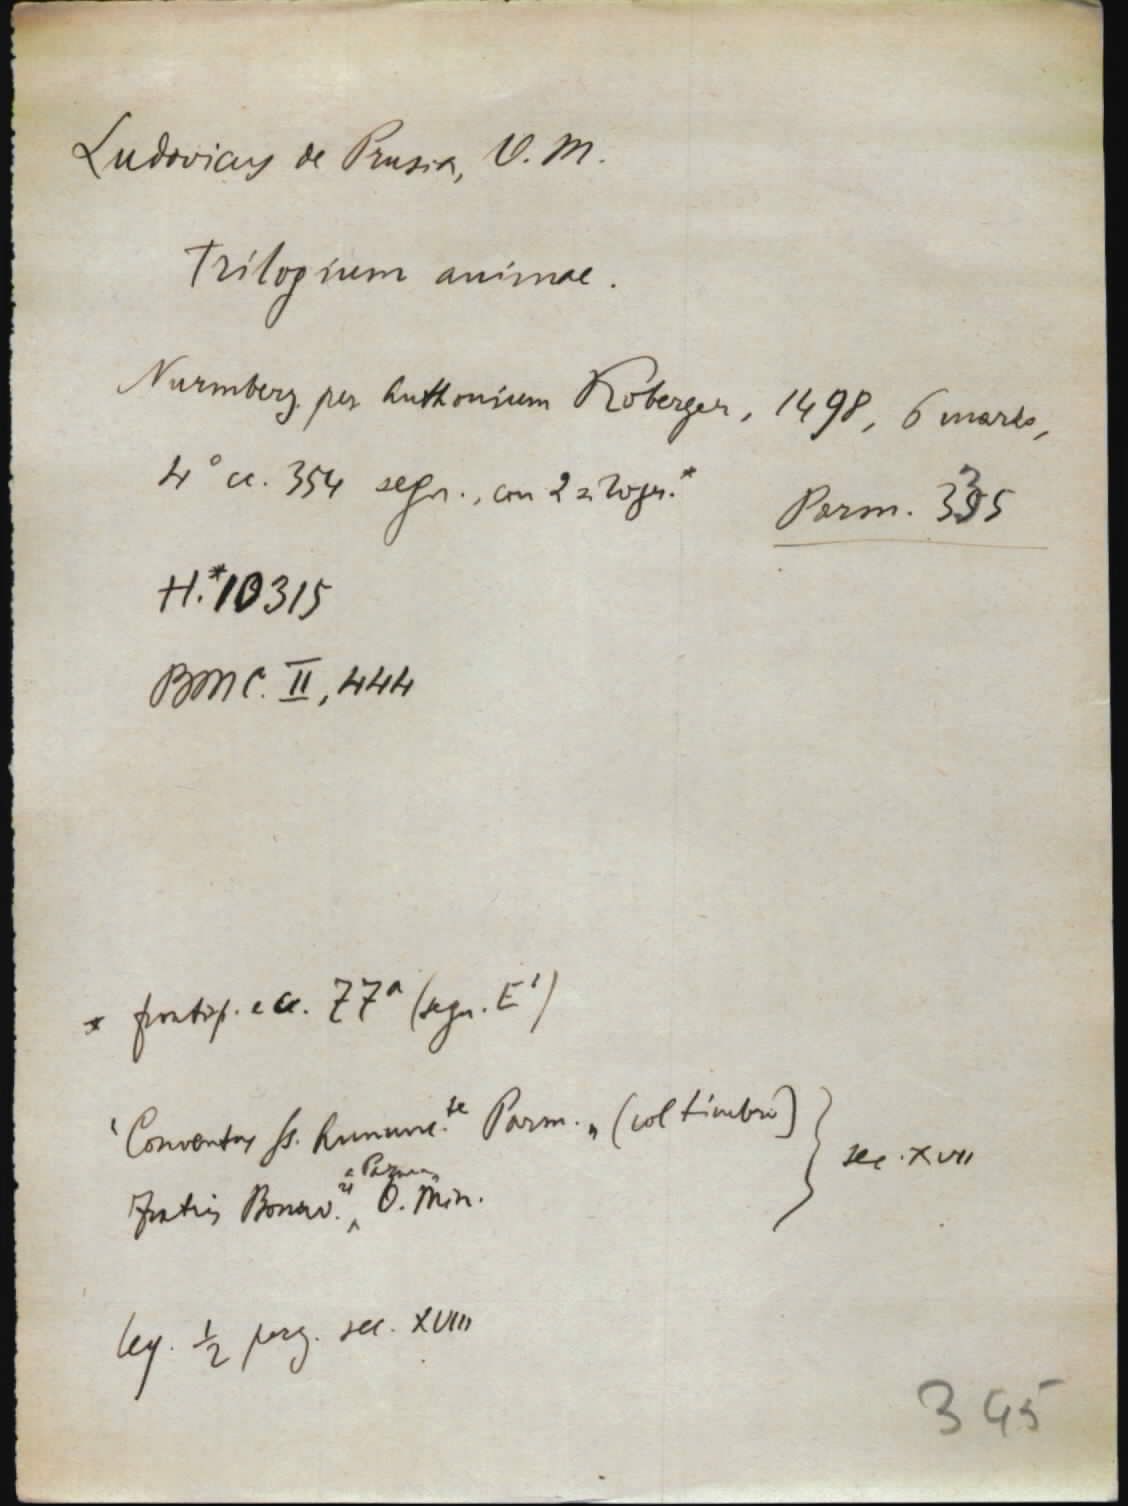 Ludovicus de Prusia, O.M.
Trilogium animae.
Nurmberg per Anthonium Koberger, 1498, 6 marzo,
4° cc. 354 segn., con 2 xilogr.*
Parm. 335
H.*10315
BMC. II, 444
* frontisp. e cc. 77a (segn. E1)
"Conventus SS. Annunc.te Parm." (col timbro)
Fratris Bonav.ae a Parma O. Min.
sec. XVII
leg. 1/2 perg. sec. XVIII
345